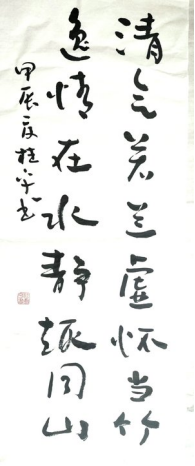 清气若兰虚怀当竹
逸情在水静趣同山
甲辰夏桂平书